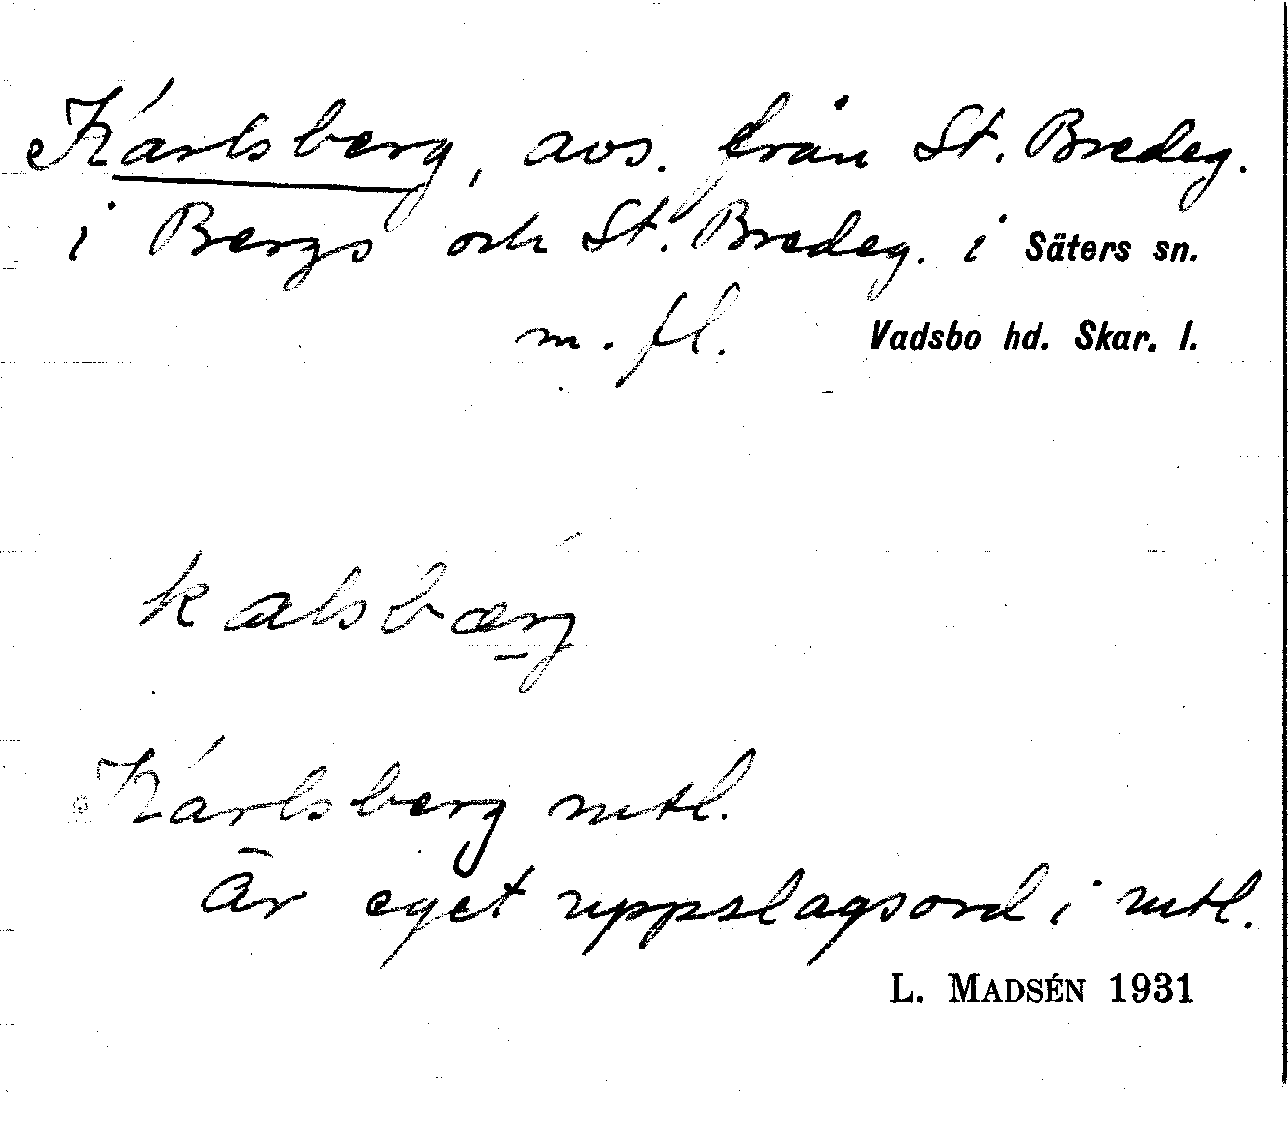 Karlsberg, avs. från St. Bredeg.
i Bergs och St. Bredeg. i Säters sn.
m. fl. Vadsbo hd. Skar. l.
kalsbærg
Karlsberg mtl.
Är eget uppslagsord i mtl.
L. MADSÉN 1931